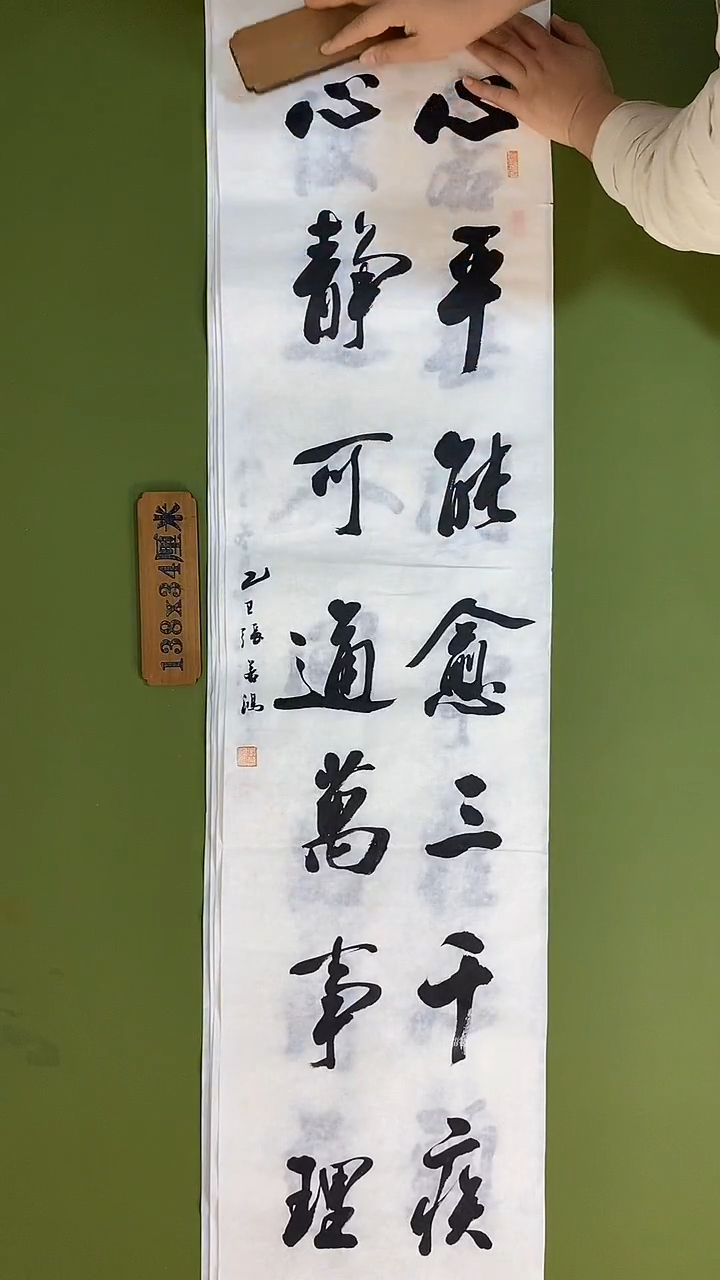 心平能愈三千疾
心静可通萬事理
乙巳張善鴻
138x34厘米